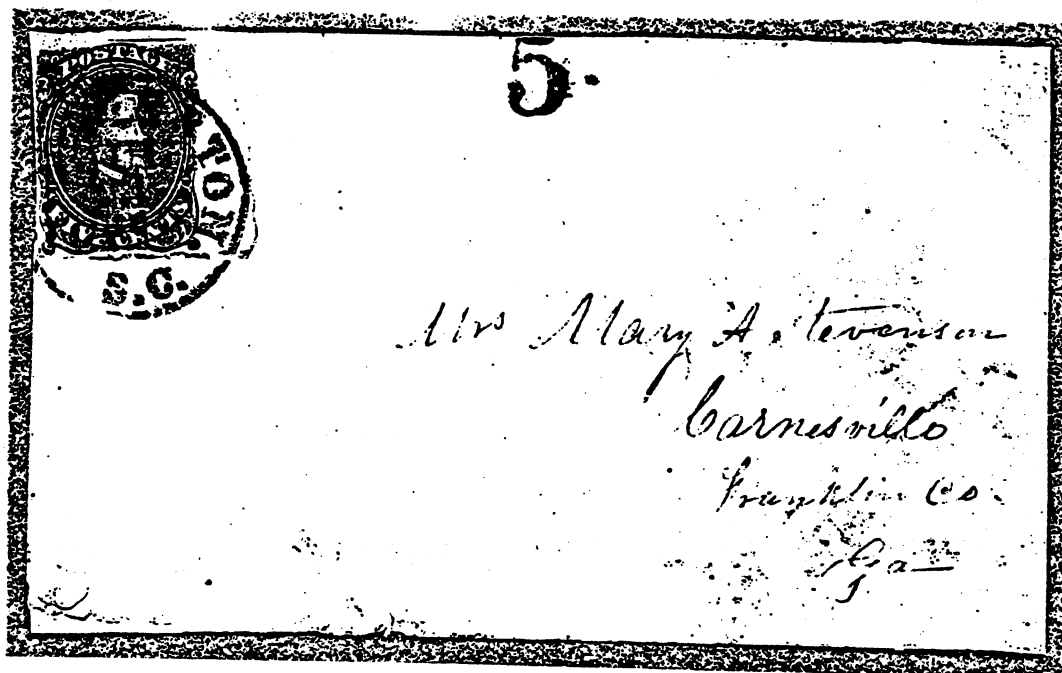 POSTAG
5
TON
S.C.
Mrs Mary A. Stevenson
Carnesville
Franklin Co.
Ga